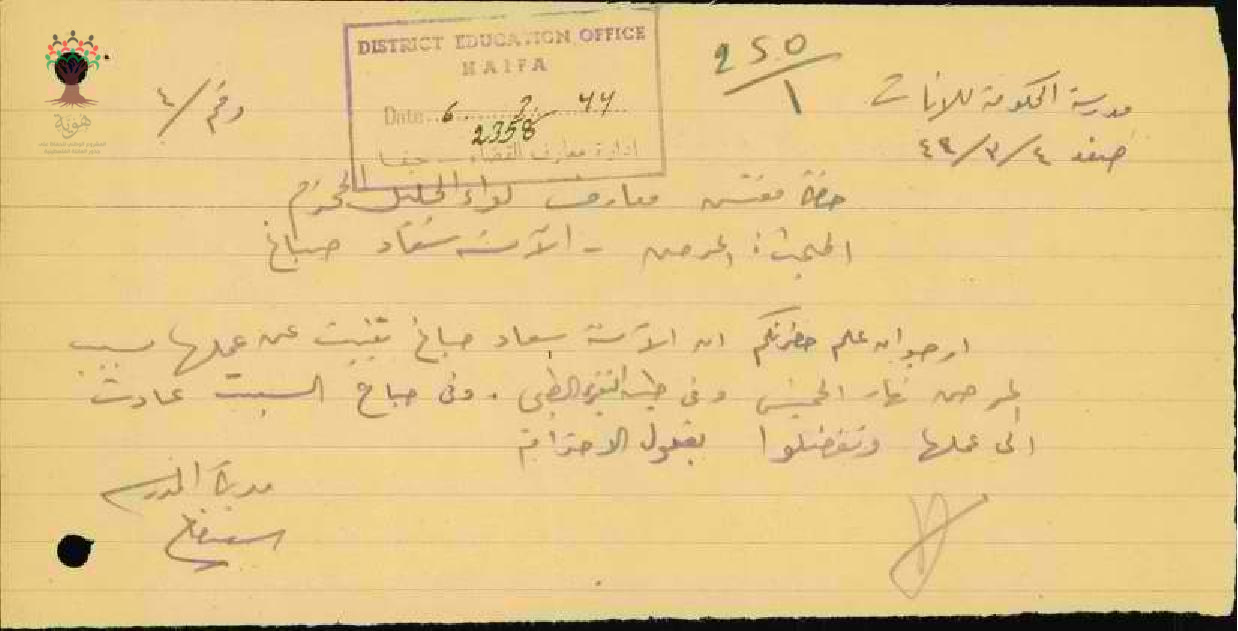 DISTRICT EDUCATION OFFICE
HAIFA
Date 6 2 44
2358
ادارة معارف القضاء - حيفا
250/1
هوية
رقم /٤
مدرسة الحكومة للاناث
صفد ٤/٣/٤٤
حضرة مفتش معارف لواء الجليل المحترم
المرض - الآنسة سعاد صباغ
ارجو ان علم حضرتكم ان الآنسة سعاد صباغ تغيبت عن عملها بسبب
المرض نهار الخميس وفي طيه التقرير الطبي . وفي صباح السبت عادت
الى عملها وتفضلوا بقبول الاحترام
مديرة المدرسة